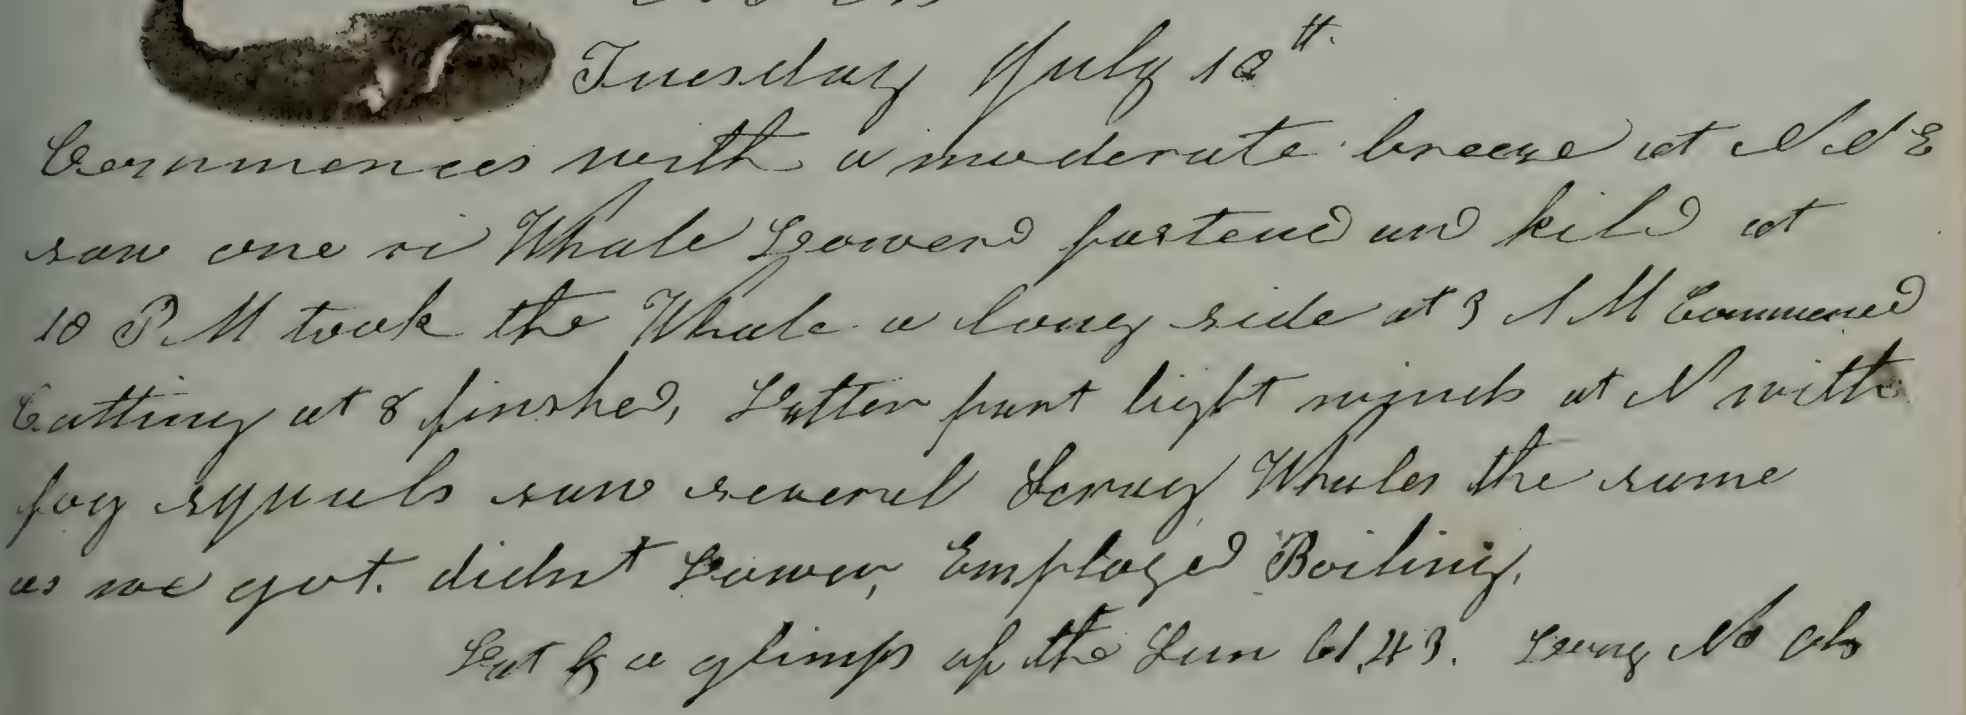 Tuesday July 10th
Commences with a moderate breeze at N N E
saw one ri Whale Lowerd fastend an kild at
10 P M took the Whale a long side at 3 A M Commenced
Cutting at 8 finshed, Latter part light winds at N with
fog squals saw several Whales the same
as we got. didnt Lower, Employed Boiling,
Lat by a glimps of the Sun 61,43. Long No Obs